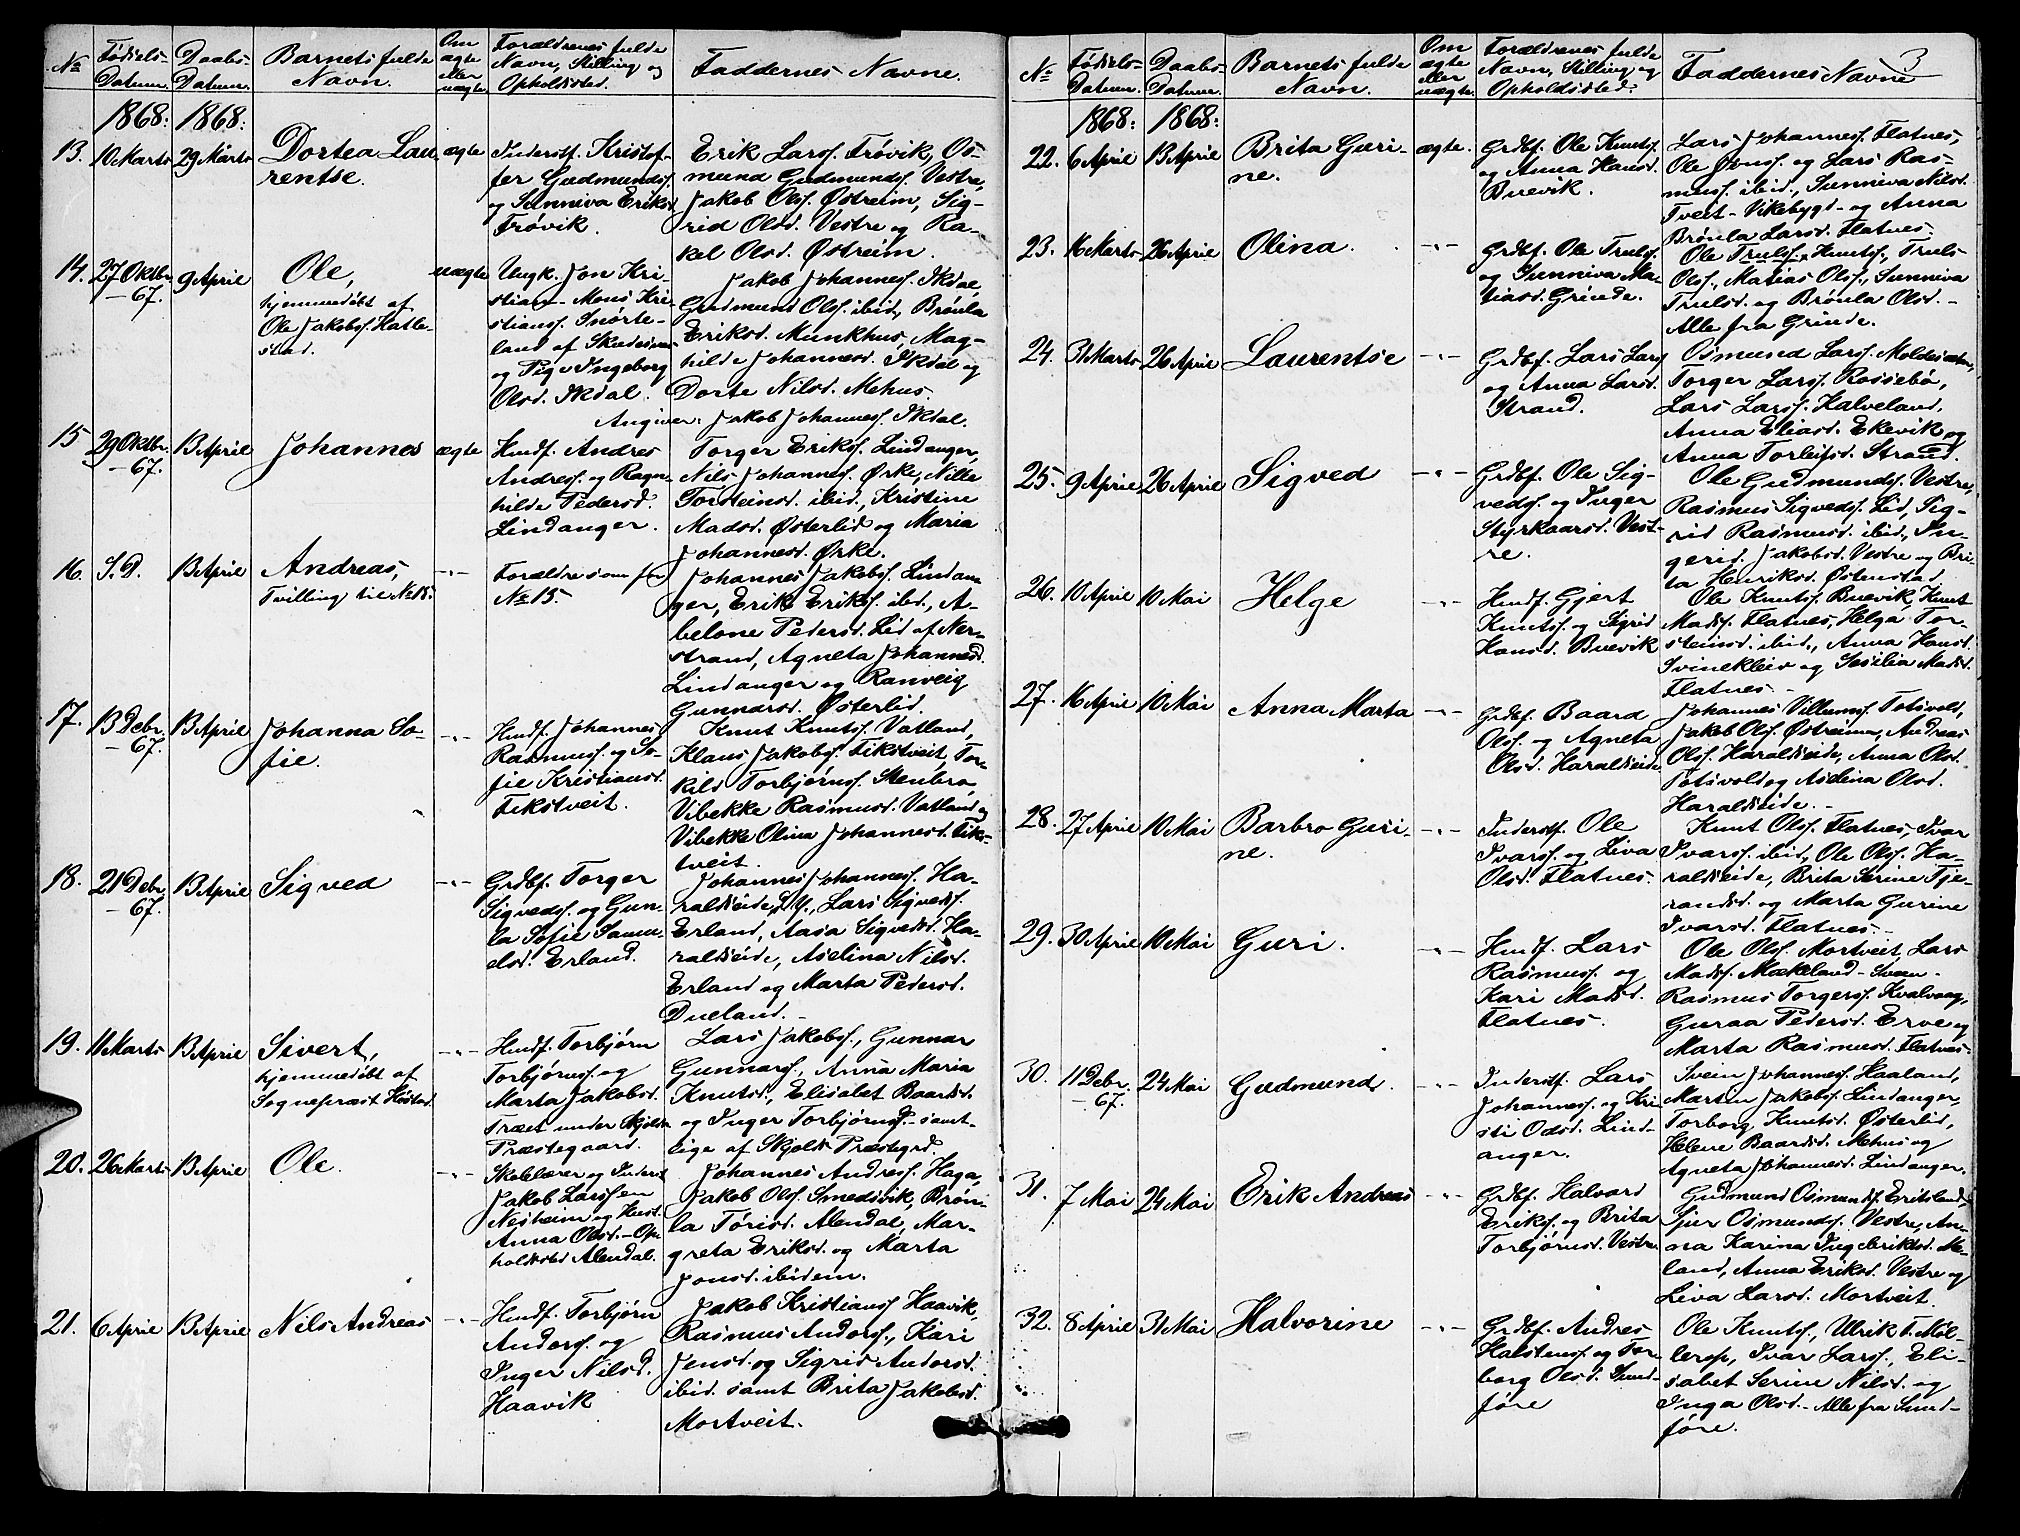 No
Fødsels-
Datum.
Daabs-
Datum.
Barnets fulde
Navn.
Om
ægte
eller
uægte.
Forældrenes fulde
Navn, Stilling og
Opholdssted.
Faddernes Navne.
1868: 1868:
13. 10 Marts 29 Marts
Dortea Lau
rentse.
ægte
Inderstf. Kristof-
fer Gudmunds.
og Sunniva Eriksd
Frøvik.
Erik Larss. Frøvik, Os-
mund Gudmunds. Vestre,
Jakob Ols. Østreim, Sig-
rid Olsd. Vestre og Ra-
kel Olsd. Østreim.
14. 27 Oktbr.
-67. 9 April
Ole,
hjemmedøbt af
Ole Jakobs. Hatle-
stad.
uægte
Ungk. Jon Kri-
stian Mons Kri-
stians. Snørte-
land af
og Pige Ingeborg
Olsd. Ikdal.
Jakob Johanness. Ikdal,
Gudmund Ols. ibid., Brønla
Eriksd. Munkhus, Mag-
hilde Johannesd. Ikdal og
Dorte Nilsd. Mehus.
Angiver: Jakob Johanness. Ikdal.
15 29 Oktbr.
-67. 13 April
Johannes
ægte
Husf. Andres
Andress. og Ragn-
hilde Pedersd.
Lindanger.
Torger Eriks. Lindanger,
Nils Johanness. Ørke, Nille
Torsteinsd. ibid., Kristine
Madsd. Østerlid og Maria
Johannesd. Ørke.
16. S.D. 13 April
Andreas,
Tvilling til No 15.
-"-
Forældre som for
No 15.
Johannes Jakobs. Lindan-
ger, Erik Eriks. ibid., A-
belone Pedersd. Lid af Ner-
strand, Agneta Johannesd.
Lindanger og Ranveig
Gunnarsd. Østerlid.
17. 13 Debr.
-67. 13 April
Johanna So-
fie.
-"-
Husf. Johannes
Rasmuss. og So-
fie Kristiansd.
Fikstveit.
Knut Knuts. Vatland,
Klaus Jakobs. Fikstveit, Tor-
kild Torbjørns. Stenbro,
Vibekke Rasmusd. Vatland og
Vibekke Olina Johannesd. Fiks-
tveit.
18. 21 Debr.
-67. 13 April
Sigved
-"-
Grdbf. Torger
Sigveds. og Gun-
la Sofie Samu-
elsd. Erland.
Johannes Johanness. Ha-
raldseide, d.y., Lars Sigveds.
Erland, Aasa Sigvedsd. Ha-
raldseide, Aselina Nilsd.
Erland og Marta Pedersd.
Dueland.-
19. 11 Marts 13 April
Sivert,
hjemmedøbt af
Sognepræst Høstad.
-"-
Husf. Torbjørn
Torbjørns. og
Marta Jakobsd.
Træet under Skjolds
Præstegaard.
Lars Jakobs., Gunnar
Gunnars., Anna Maria
Knutsd., Elisabet Baardsd.
og Inger Torbjørnsd. - samt-
lige af Skjolds Præstegrd.
20. 26 Marts 13 April
Ole.
-"-
Skolelærer og Inderst
Jakob Larssen
Nesheim og Hust.
Anna Olsd. - Op-
holdssted Alendal.
Johannes Andress. Haga,
Jakob Ols. Smedsvik, Brøn-
la Tørisd. Alendal, Mar-
greta Eriksd. og Marta
Jonsd. ibidem.
21. 6 April 13 April
Nils Andreas
-"-
Husf. Torbjørn
Anders. og
Inger Nilsd.
Haavik
Jakob Kristians. Haavik,
Rasmus Anders., Kari
Jensd. og Sigrid Andersd.
ibid. samt Brita Jakobsd.
Mortveit.
3
No
Fødsels-
Datum.
Daabs-
Datum.
Barnets fulde
Navn.
Om
ægte
eller
uægte.
Forældrenes fulde
Navn, Stilling og
Opholdssted.
Faddernes Navne
1868: 1868:
22. 6 April 13 April
Brita Guri-
ne.
ægte.
Grdbf. Ole Knuts.
og Anna Hansd.
Buevik.
Lars Johanness. Flatnes,
Ole Jons. og Lars Ras-
muss. ibid., Sunniva Nilsd.
Tveit - Vikebygd - og Anna
Brønla Larsd. Flatnes.
23. 16 Marts 26 April
Olina.
-"-
Grdbf. Ole Truls.
og Sunniva Ma-
tiasd. Grinde.
Ole Truls. Knuts., Truls
Ols., Matias Ols., Sunniva
Trulsd. og Brønla Olsd. -
Alle fra Grinde.
24. 31 Marts 26 April
Laurentse
-"-
Grdbf. Lars Lars.
og Anna Larsd.
Strand.
Osmund Larss. Moldesæter,
Torger Larss. Rossebø,
Lars Larss. Halveland,
Anna Eliasd. Ekevik og
Anna Torleifsd. Strand.
25. 9 April 26 April
Sigved
-"-
Grdbf. Ole Sig-
veds. og Inger
Styrkaarsd. Vest-
re.
Ole Gudmunds. Vestre,
Rasmus Sigveds. Lid, Sig-
rid Rasmusd. ibid., In-
gerid Jakobsd. Vestre og Bri-
ta Henriksd. Østenstad.
26. 10 April 10 Mai
Helge
-"-
Husf. Gjert
Knuts. og Sigrid
Hansd. Buevik
Ole Knuts. Buevik, Knut
Mads. Flatnes, Helga Tor-
steinsd. ibid., Anna Hansd.
Svinekleiv og Sesilia Madsd.
Flatnes.-
27. 16 April 10 Mai
Anna Marta
-"-
Grdbf. Baard
Ols. og Agneta
Olsd. Haraldseide
Johannes Villums. Totsvold,
Jakob Ols. Østreim, Andreas
Ols. Haraldseide, Anna Olsd.
Totsvold og Aselina Olsd.
Haraldseide.-
28. 27 April 10 Mai
Barbro Guri-
ne.
-"-
Inderstf. Ole
Ivars. og Liva
Olsd. Flatnes.
Knut Ols. Flatnes, Ivar
Ivars. ibid., Ole Ols. Ha-
raldseide, Brita Serine Tje-
randsd. og Marta Gurine
Ivarsd. Flatnes.-
29. 30 April 10 Mai
Guri.
-"-
Husf. Lars
Rasmuss. og
Kari Madsd.
Flatnes.
Ole Ols. Mortveit, Lars
Mads. Mækeland - Sveen -
Rasmus Torgers. Kvalvaag,
Guraa Pedersd. Erve og
Marta Rasmusd. Flatnes.
30. 11 Debr.
-67. 24 Mai
Gudmund.
-"-
Inderstf. Lars
Johanness. og Kri-
sti Odsd. Lind-
anger.
Svein Johanness. Haaland,
Martin Jakobs. Lindanger,
Torborg Knutsd. Østerlid,
Helene Baardsd. Mehus og
Agneta Johannesd. Lindanger.
31. 7 Mai 24 Mai
Erik Andreas
-"-
Grdbf. Halvard
Eriks. og Brita
Torbjørnsd. Vestre
Gudmund Osmunds. Eriksland,
Sjur Osmunds. Vestre, An-
na Karina Ingebriktsd. Me-
land, Anna Eriksd. Vestre og
Liva Larsd. Mortveit.
32. 8 April 31 Mai
Halvorine
-"-
Grdbf. Andres
Halstens. og Tor-
borg Olsd. Sund-
føre
Ole Knuts., Ulrik T. Møl-
lerop, Ivar Larss., Eli-
sabet Serine Nilsd. og
Inga Olsd. - Alle fra Sund-
føre.